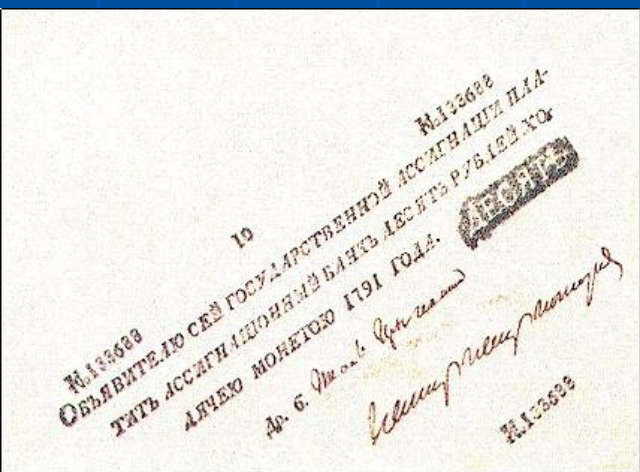 N.133688
N.133688
10
ОБЪЯВИТЕЛЮ СЕЙ ГОСУДАРСТВЕННОЙ АССИГНАЦІИ ПЛА-
ТИТЬ АССИГНАЦІОННЫЙ БАНКЪ ДЕСЯТЬ РУБЛЕЙ ХО-
ДЯЧЕЮ МОНЕТОЮ 1791 ГОДА.
ДЕСЯТЬ
Др. б.
N.133688